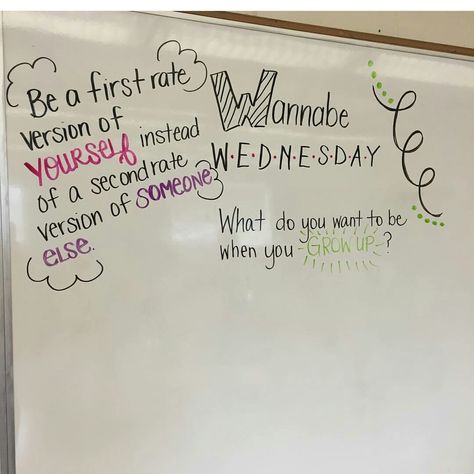 Be a first rate
version of
YOURSELF instead
of a second rate
version of SOMEONE
ELSE.
Wannabe
W•E•D•N•E•S•D•A•Y
What do you want to be
when you GROW UP?